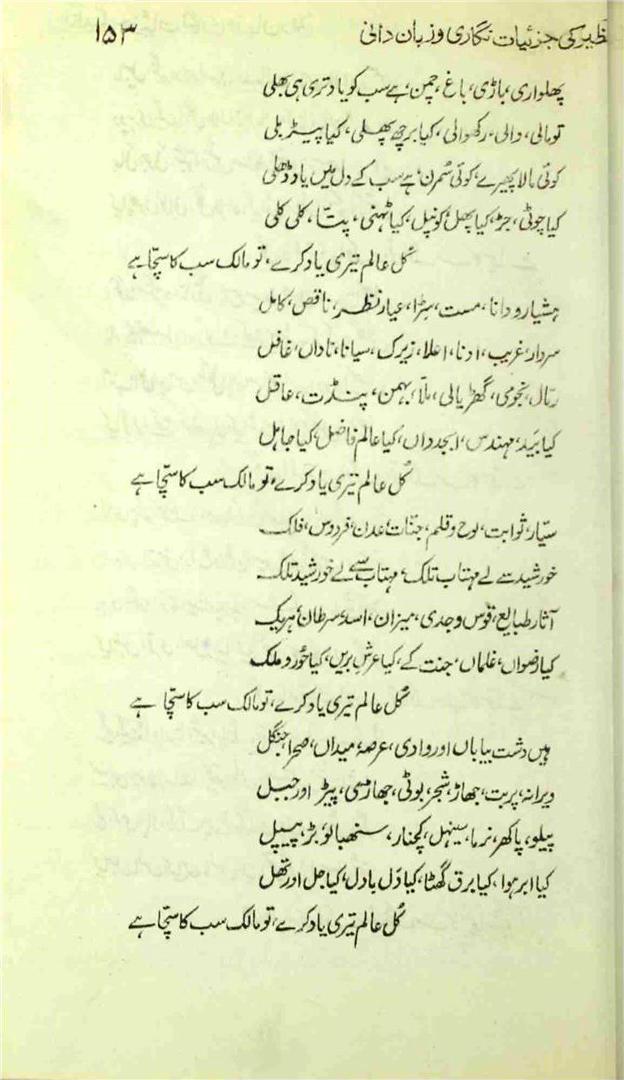 نظیر کی جزئیات نگاری و زبان دانی ۱۵۳
پھلواری، باڑی، باغ، چمن، ہے سب کو یاد تری ہی بھلی
تو مالی، والی، رکھوالی، کیا برچھ پھلی، کیا پیڑ بلی
کوئی مالا پھیرے، کوئی سُمرن، ہے سب کے دل میں یاد ڈھلی
کیا چوٹی، جڑ، کیا پھل، کونپل، کیا ٹہنی، پتا، کلی کلی
کُل عالم تیری یاد کرے، تو مالک سب کا سچّا ہے
ہشیار و دانا، مست، سِڑا، عیار نظر، ناقص، کامل
سردار، غریب، ادنا، اعلا، زیرک، سیانا، ناداں، غافل
رمّال، نجومی، گھڑیالی، ملّا، بہمن، پنڈت، عاقل
کیا بید، مہندس، ابجد داں، کیا عالم فاضل، کیا جاہل
کُل عالم تیری یاد کرے، تو مالک سب کا سچّا ہے
سیّار، ثوابت، لوح و قلم، جنّات، عدن، فردوس، فلک
خورشید سے لے مہتاب تلک، مہتاب سے لے خورشید تلک
آثار طبایع، قوس و جدی، میزان، اسد، سرطان، ہریک
کیا رضواں، غلماں، جنت کے، کیا عرشِ بریں، کیا حُور و ملک
کُل عالم تیری یاد کرے، تو مالک سب کا سچّا ہے
ہیں دشت بیاباں اور وادی، عرصۂ میداں، صحرا جنگل
ویرانہ، پربت، جھاڑ، شجر، بوٹی، جھاڑی، پیڑ اور جبل
پیلو، پاکھر، نرما، سینہل، کچنار، سنھبالو، بڑ، پیپل
کیا ابر ہوا، کیا برق گھٹا، کیا دَل بادل، کیا جل اور تھل
کُل عالم تیری یاد کرے، تو مالک سب کا سچّا ہے